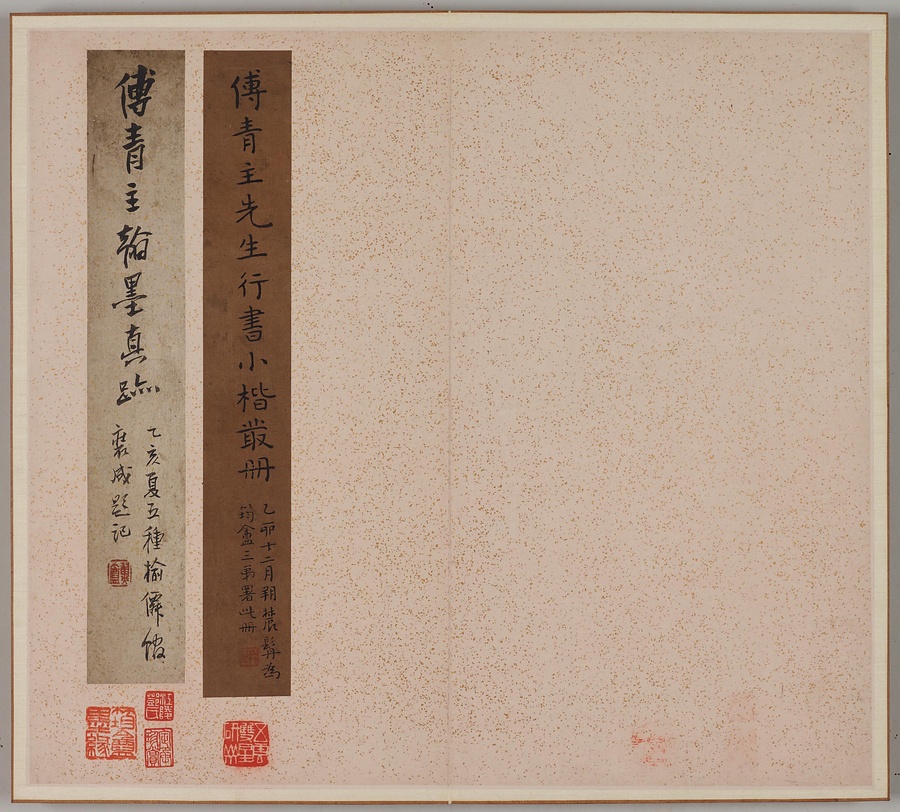 傅青主先生行書小楷叢冊
乙卯十二月朔農髯為
筠盦三弟署此冊
傅青主翰墨真跡
乙亥夏五種榆僊館
襄成題記